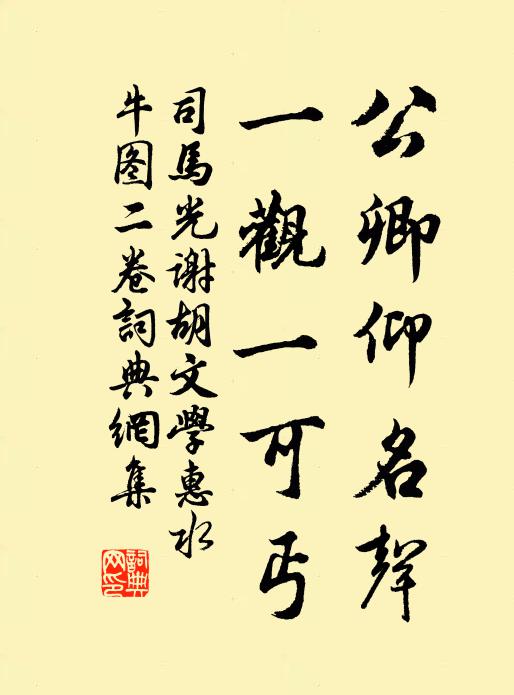 公卿仰名聲
一觀一可丐
司馬光謝胡文學惠水
牛图二卷詞典網集
詞典网印